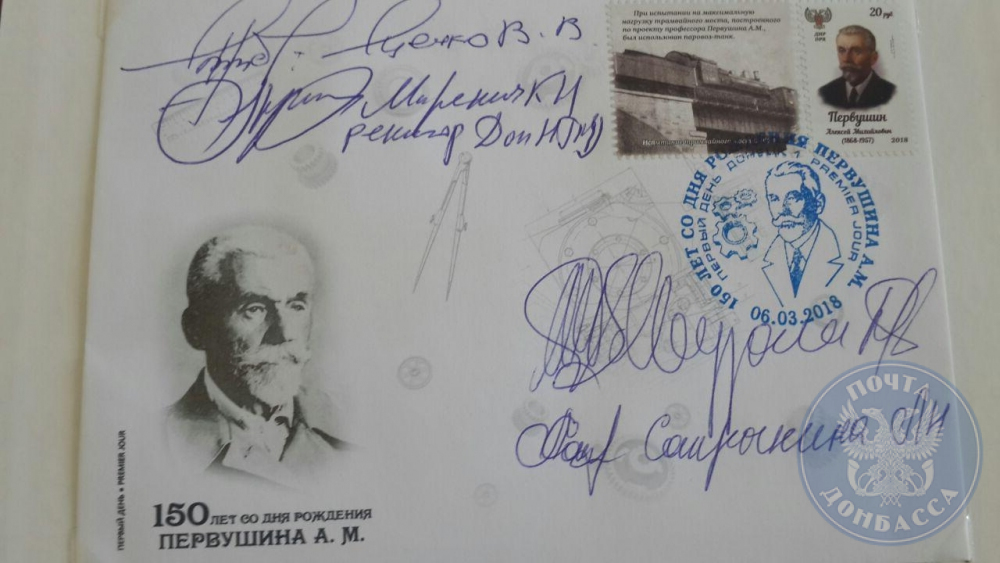 Яценко В. В
Маренич К Н
ректор ДонНТУ
При испытании на максимальную
нагрузку трамвайного моста, построенного
по проекту профессора Первушина А.М.,
был использован паровоз-танк.
ДНР
DPR
20 руб.
Первушин
Алексей Михайлович
(1868-1957)
2018
150 ЛЕТ СО ДНЯ РОЖДЕНИЯ ПЕРВУШИНА А.М.
ПЕРВЫЙ ДЕНЬ
PREMIER JOUR
06.03.2018
Сатрыкина
ПОЧТА
ДОНБАССА
ПЕРВЫЙ ДЕНЬ • PREMIER JOUR
150 ЛЕТ СО ДНЯ РОЖДЕНИЯ
ПЕРВУШИНА А. М.